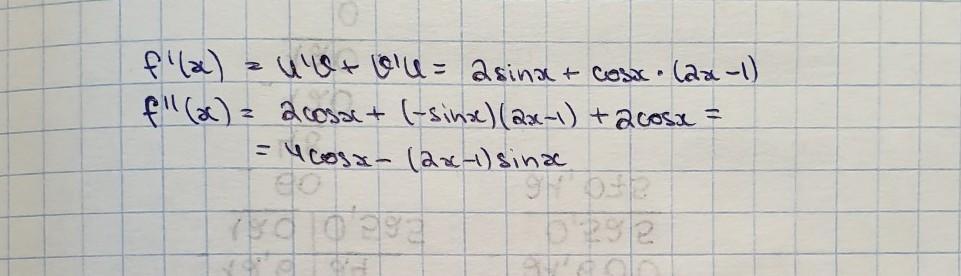 f'(x) = u'v + v'u = 2sinx + cosx · (2x-1)
f''(x) = 2cosx + (-sinx)(2x-1) + 2cosx =
= 4cosx - (2x-1)sinx